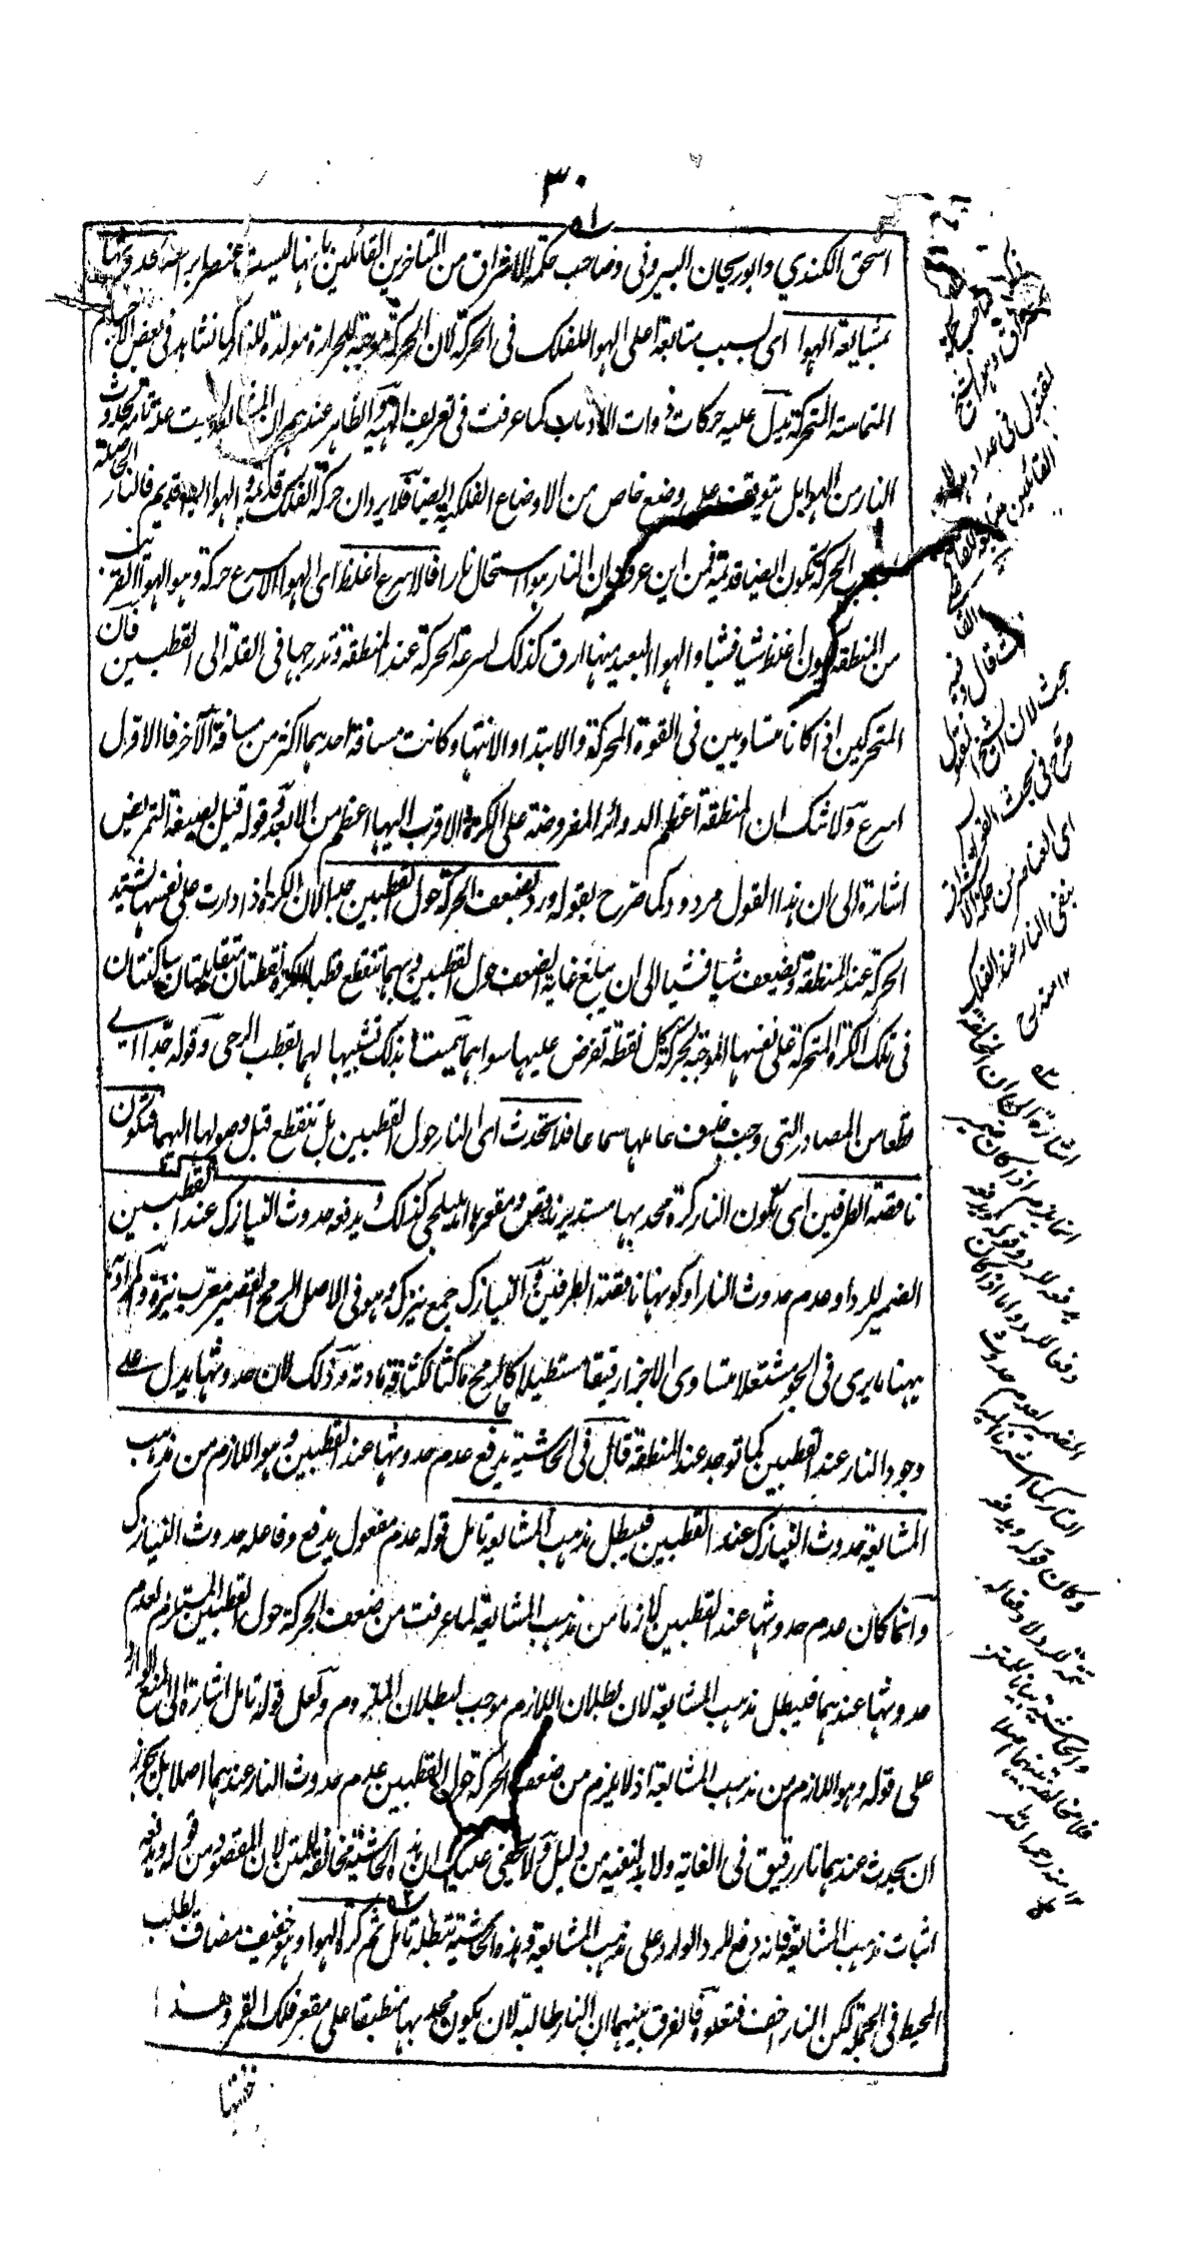 ٣٠
اسحق الكندي وابو ريحان البيروني وصاحب حكمة الاشراق من المتأخرين القائلين بانها ليست عنصرا برأسه بحدوثها
بمشايعة الهوا اى بسبب متابعة اعلى الهوا للفلك فى الحركة لان الحركة موجبة للحرارة مولدة للنار كما نشاهد فى بعض الاجسام
المتماسة المتحركة يدل عليه حركات ذوات الاذناب كما عرفت فى تعريف الهيئة والظاهر عندهم ان ليست علة تامة لحدوث
النار من الهوا بل يتوقف على وضع خاص من الاوضاع الفلكية ايضا فلا يرد ان حركة الفلك قديمة والهوا ايضا قديم فالنار الحاصلة
بسبب الحركة تكون ايضا قديمة فمن اين عرف ان النار هوا استحال نارا فالاسرع اغلظ اى الهوا الاسرع حركة وهو الهوا القريب
من المنطقة يكون اغلظ شيا فشيا والهوا البعيد منها ارق كذلك لسرعة الحركة عند المنطقة وتدرجها فى القلة الى القطبين فان
المتحركين اذا كانا متساويين فى القوة المحركة والابتدا والانتها وكانت مسافة احدهما اكثر من مسافة الآخر فالاول
اسرع ولا شك ان المنطقة اعظم الدوائر المفروضة على الكرة والاقرب اليها اعظم من الابعد وقوله قيل بصيغة التمريض
اشارة الى ان هذا القول مردود كما صرح بقوله ورد بضعف الحركة حول القطبين جدا لان الكرة اذا دارت على نفسها يشتد
الحركة عند المنطقة ويضعف شيا فشيا الى ان يبلغ غاية الضعف حول القطبين وبهما تنقطع قطبا الكرة نقطتان متقابلتان ساكنتان
فى تلك الكرة المتحركة على نفسها الموجبة لحركة كل نقطة تفرض عليها سواهما سميت بذلك تشبيها لهما بقطب الرحى وقوله جدا اى
قطعا من المصادر التى وجب حذف عاملها سماعا فلا تحدث اى النار حول القطبين بل تنقطع قبل وصولها اليهما فتكون
ناقصة الطرفين اى تكون النار كرة محدبها مستدير ناقص ومقعرها اهليلجى كذلك ويدفعه حدوث النيازك عند القطبين
الضمير للرد او عدم حدوث النار او كونها ناقصة الطرفين والنيازك جمع نيزك وهو فى الاصل الرمح القصير معرب نيزه والمراد
ههنا ما يرى فى الجو مشتعلا متساوى الاجزا رقيقا مستطيلا كالرمح ماكثا لكثافة مادته وذلك لان حدوثها يدل على
وجود النار عند القطبين كما توجد عند المنطقة قال فى الحاشية يدفع عدم حدوثها عند القطبين وهو اللازم من مذهب
المشايعة حدوث النيازك عند القطبين فيبطل مذهب المشايعة تامل قوله عدم مفعول يدفع وفاعله حدوث النيازك
وانما كان عدم حدوثها عند القطبين لازما من مذهب المشايعة لما عرفت من ضعف الحركة حول القطبين المستلزم لعدم
حدوثها عندهما فيبطل مذهب المشايعة لان بطلان اللازم موجب لبطلان الملزوم ولعل قوله تامل اشارة الى المنع الوارد
على قوله وهو اللازم من مذهب المشايعة اذ لا يلزم من ضعف الحركة حول القطبين عدم حدوث النار عندهما اصلا بل يجوز
ان يحدث عندهما نار رقيق فى الغاية ولا بد لنفيه من دليل ولا يخفى عليك ان هذه الحاشية مخالفة للمتن لان المقصود من قوله ويدفعه
اثبات مذهب المشايعة فانه دفع للرد الوارد على مذهب المشايعة وهذه الحاشية تبطله تامل ثم كرة الهوا وهو خفيف مضاف يطلب
المحيط فى الجملة لكن النار اخف فتعلوه فالفرق بينهما ان النار طالبة لان يكون محدبها منطبقا على مقعر فلك القمر وهذا
لقبول فى عداد
القائلين
قال وفيه
بحث لان الشيخ المقتول
صرح فى بحث
اى العناصر من حكمة الاشراق
بنفى النار عند الفلك
١٢ منه
اشارة الى ان المخالفة
انما يلزم اذا كان ضمير
يدفعه للرد وقوله ويدفعه
دفعا للرد واما اذا كان
الضمير لعدم حدوث
النار كما
وكان قوله ويدفعه
تتمة للرد لا دفعا له
والحاشية بيانا للمتن
فلا مخالفة بينهما اصلا
١٢ منه رحمه الله